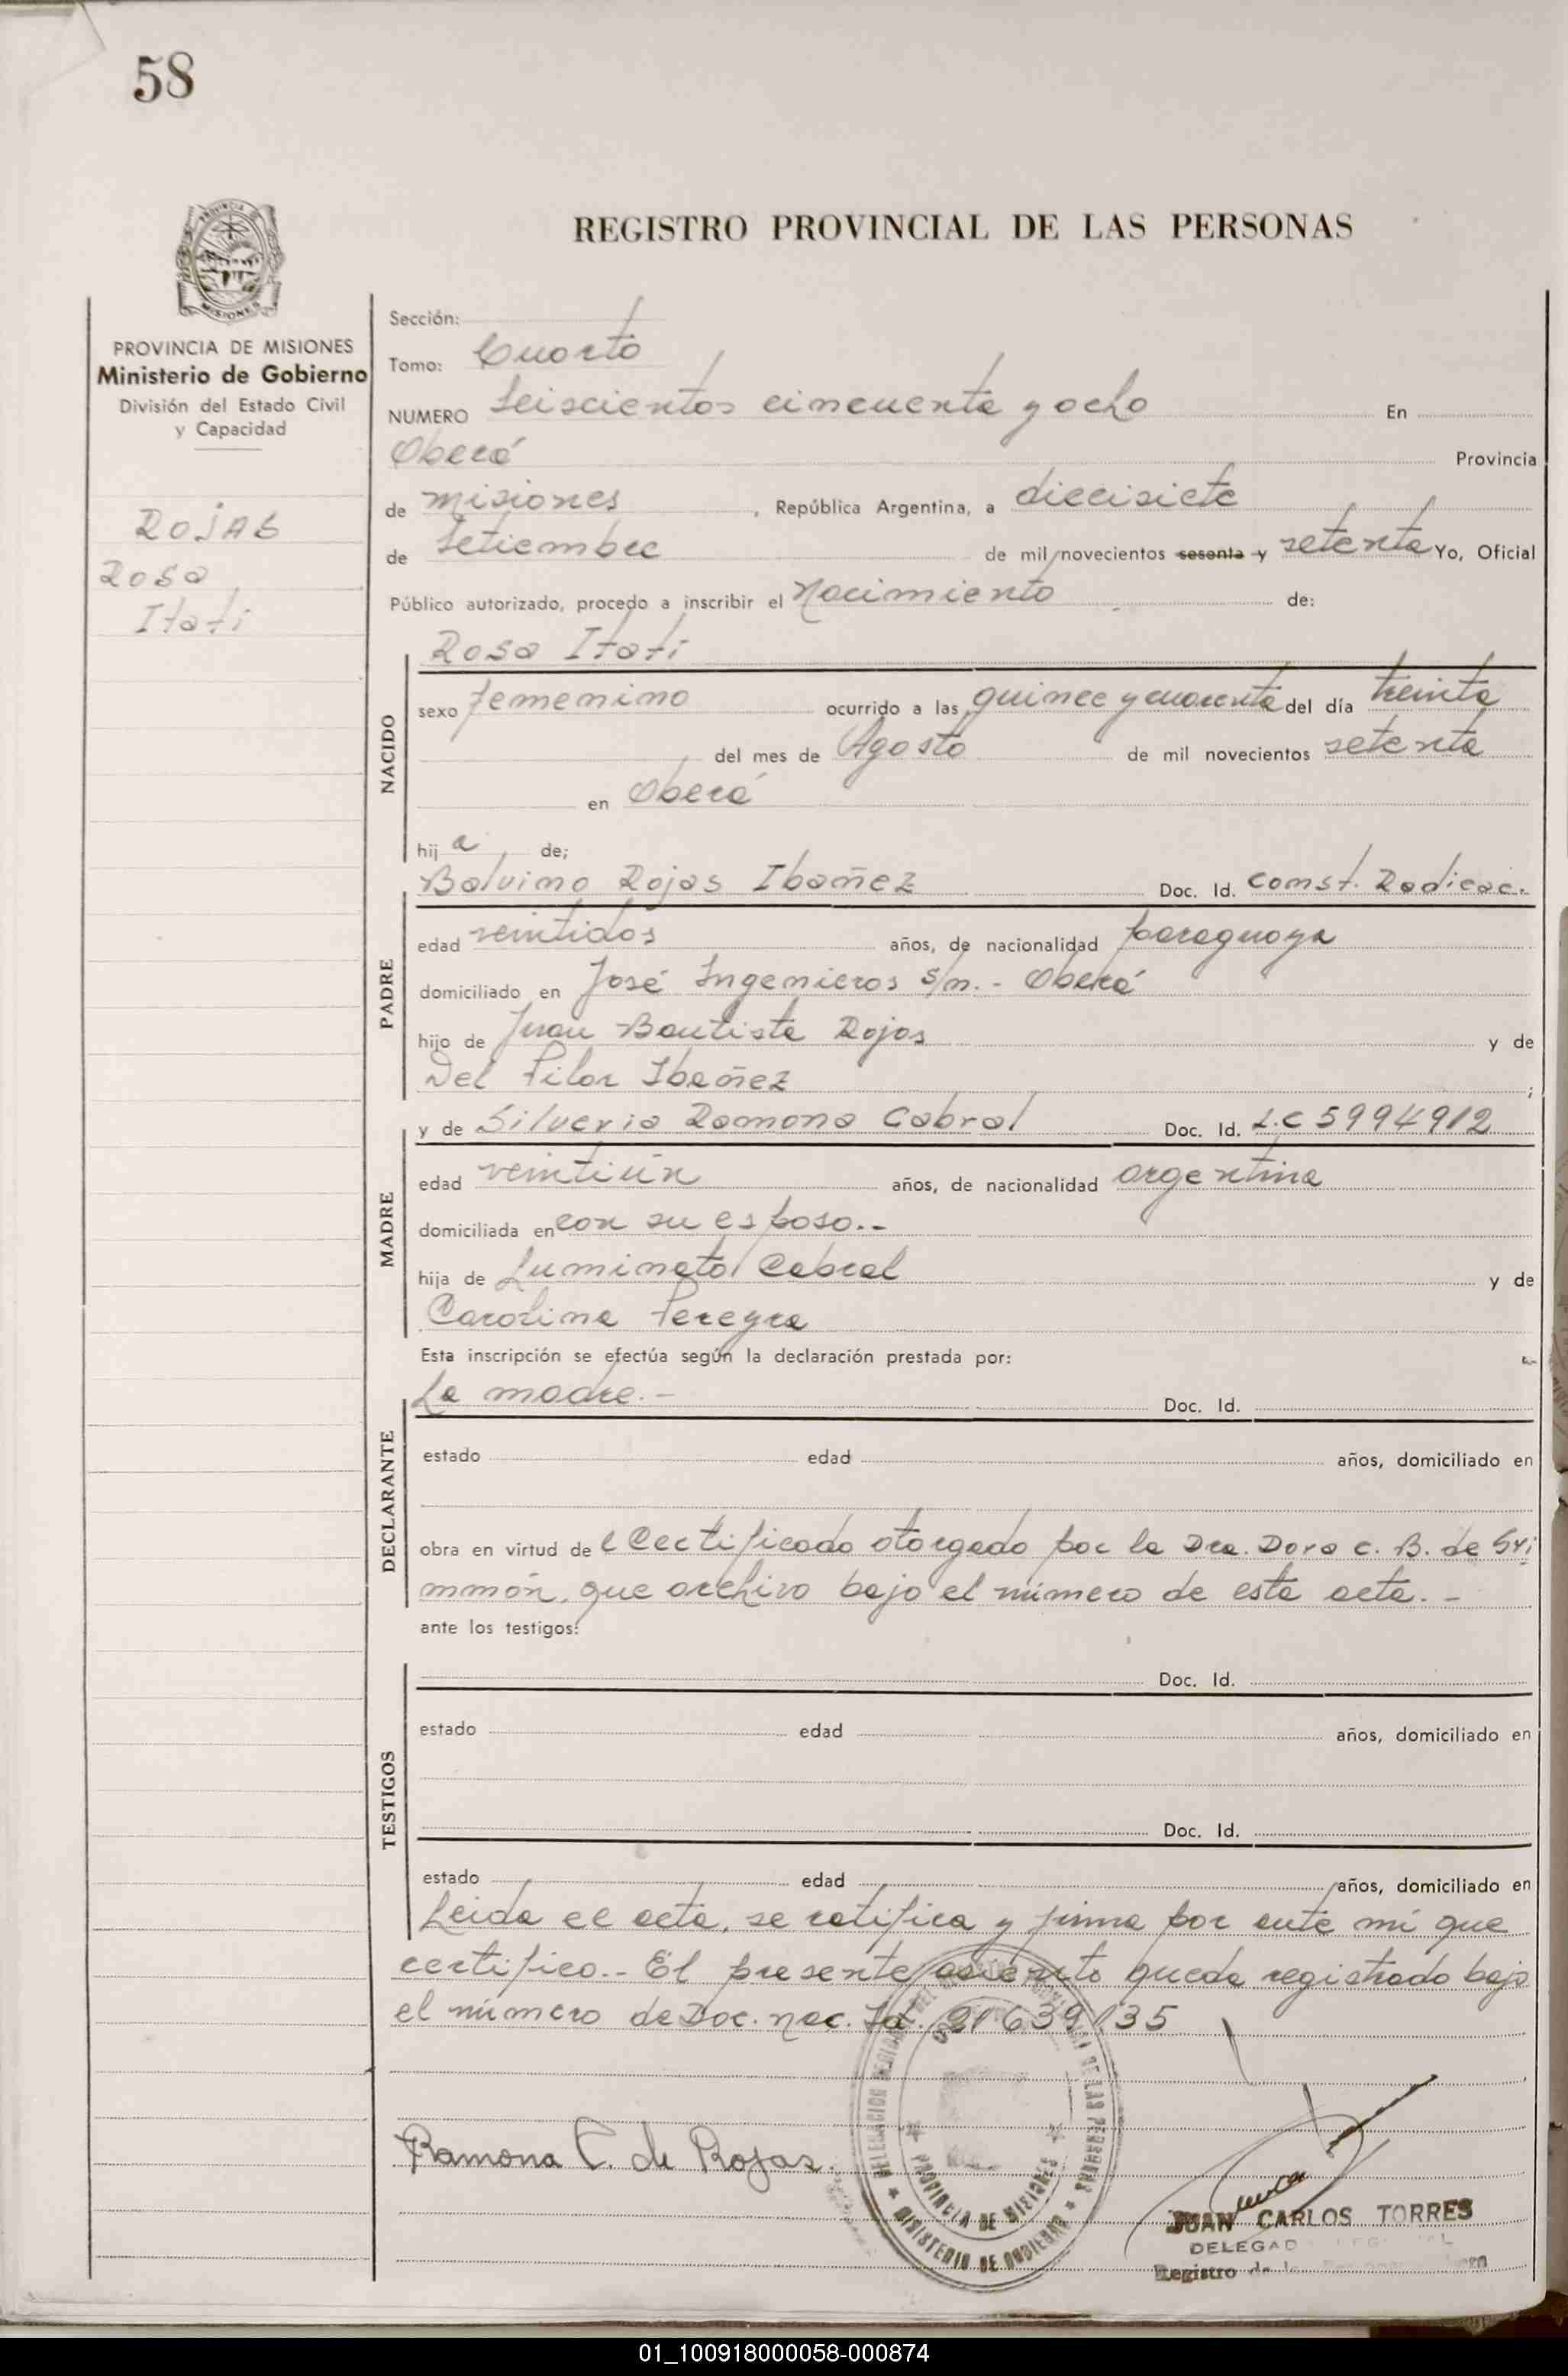 58
REGISTRO PROVINCIAL DE LAS PERSONAS
PROVINCIA DE MISIONES
Ministerio de Gobierno
División del Estado Civil
y Capacidad
ROJAS
Rosa
Itatí
Sección:
Tomo: Cuarto
NUMERO Seiscientos cincuenta y ocho En
Oberá Provincia
de misiones , República Argentina, a diecisiete
de Setiembre de mil novecientos sesenta y setenta Yo, Oficial
Público autorizado, procedo a inscribir el Nacimiento de:
Rosa Itatí
NACIDO
sexo femenino ocurrido a las quince y cuarenta del día treinta
del mes de Agosto de mil novecientos setenta
en Oberá
hij a de;
Balvino Rojas Ibañez Doc. Id. Const. Radicac.
PADRE
edad veintidos años, de nacionalidad paraguaya
domiciliado en José Ingenieros s/n.- Oberá
hijo de Juan Bautista Rojas y de
Del Pilar Ibañez ;
y de Silveria Ramona Cabral Doc. Id. L.C 5994912
MADRE
edad veintiún años, de nacionalidad argentina
domiciliada en con su esposo.-
hija de Luminato Cabral y de
Carolina Pereyra
Esta inscripción se efectúa según la declaración prestada por:
La madre.- Doc. Id.
DECLARANTE
estado edad años, domiciliado en
obra en virtud de l Certificado otorgado por la Dra. Dora C. B. de Gri
mmón, que archivo bajo el número de esta acta.-
ante los testigos:
TESTIGOS
Doc. Id.
estado edad años, domiciliado en
Doc. Id.
estado edad años, domiciliado en
Leida el acta, se ratifica y firma por ante mí que
certifico.- El presente asiento queda registrado bajo
el número de Doc. nac. Id. 21639135
Ramona C. de Rojas.
PROVINCIA DE MISIONES
MINISTERIO DE GOBIERNO
JUAN CARLOS TORRES
Registro
01_100918000058-000874